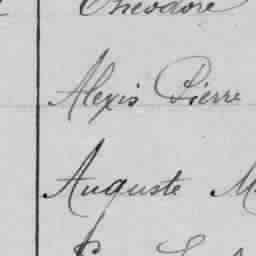 Theodore
Alexis Pierre
Auguste